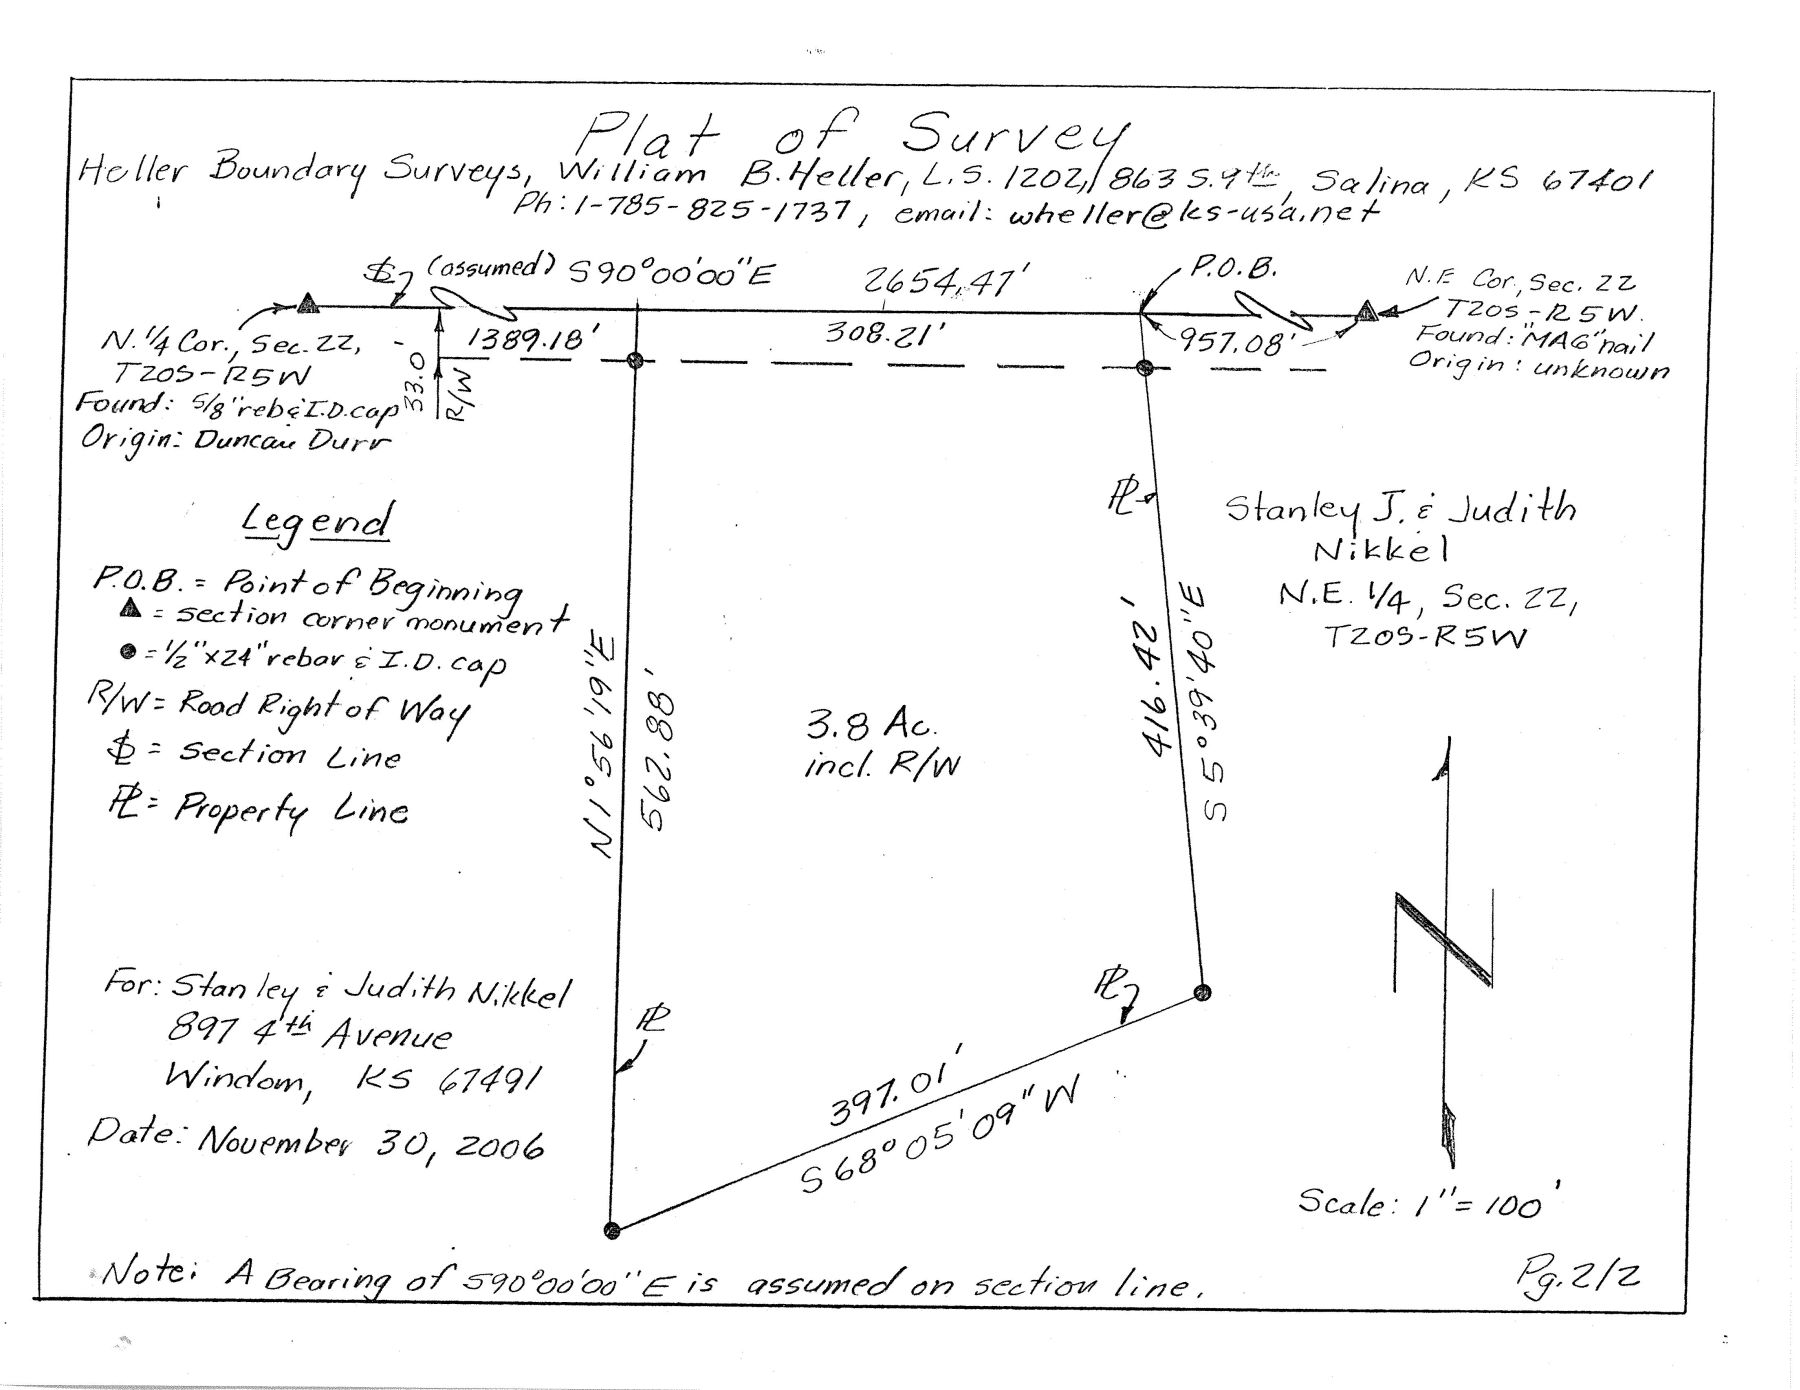 Plat of Survey
Heller Boundary Surveys, William B. Heller, L.S. 1202, 863 S. 9th, Salina, KS 67401
Ph: 1-785-825-1737, email: wheller@ks-usa.net
(assumed) S90°00'00"E 2654.47'
P.O.B.
N.E Cor., Sec. 22
T20S-R5W.
Found: "MAG" nail
Origin: unknown
N. 1/4 Cor., Sec. 22,
T20S-R5W
Found: 5/8" reb & I.D. cap
Origin: Duncan Durr
1389.18'
308.21'
957.08'
33.0
R/W
PL
Stanley J. & Judith
Nikkel
N.E. 1/4, Sec. 22,
T20S-R5W
Legend
P.O.B. = Point of Beginning
▲ = section corner monument
● = 1/2" x 24" rebar & I.D. cap
R/W = Road Right of Way
SL = Section Line
PL = Property Line
N 1°56'19"E
562.88'
3.8 Ac.
incl. R/W
416.42'
S 5°39'40"E
N
For: Stanley & Judith Nikkel
897 4th Avenue
Windom, KS 67491
Date: November 30, 2006
PL
PL
397.01'
S 68°05'09" W
Scale: 1" = 100'
Note: A Bearing of S90°00'00" E is assumed on section line.
Pg. 2/2